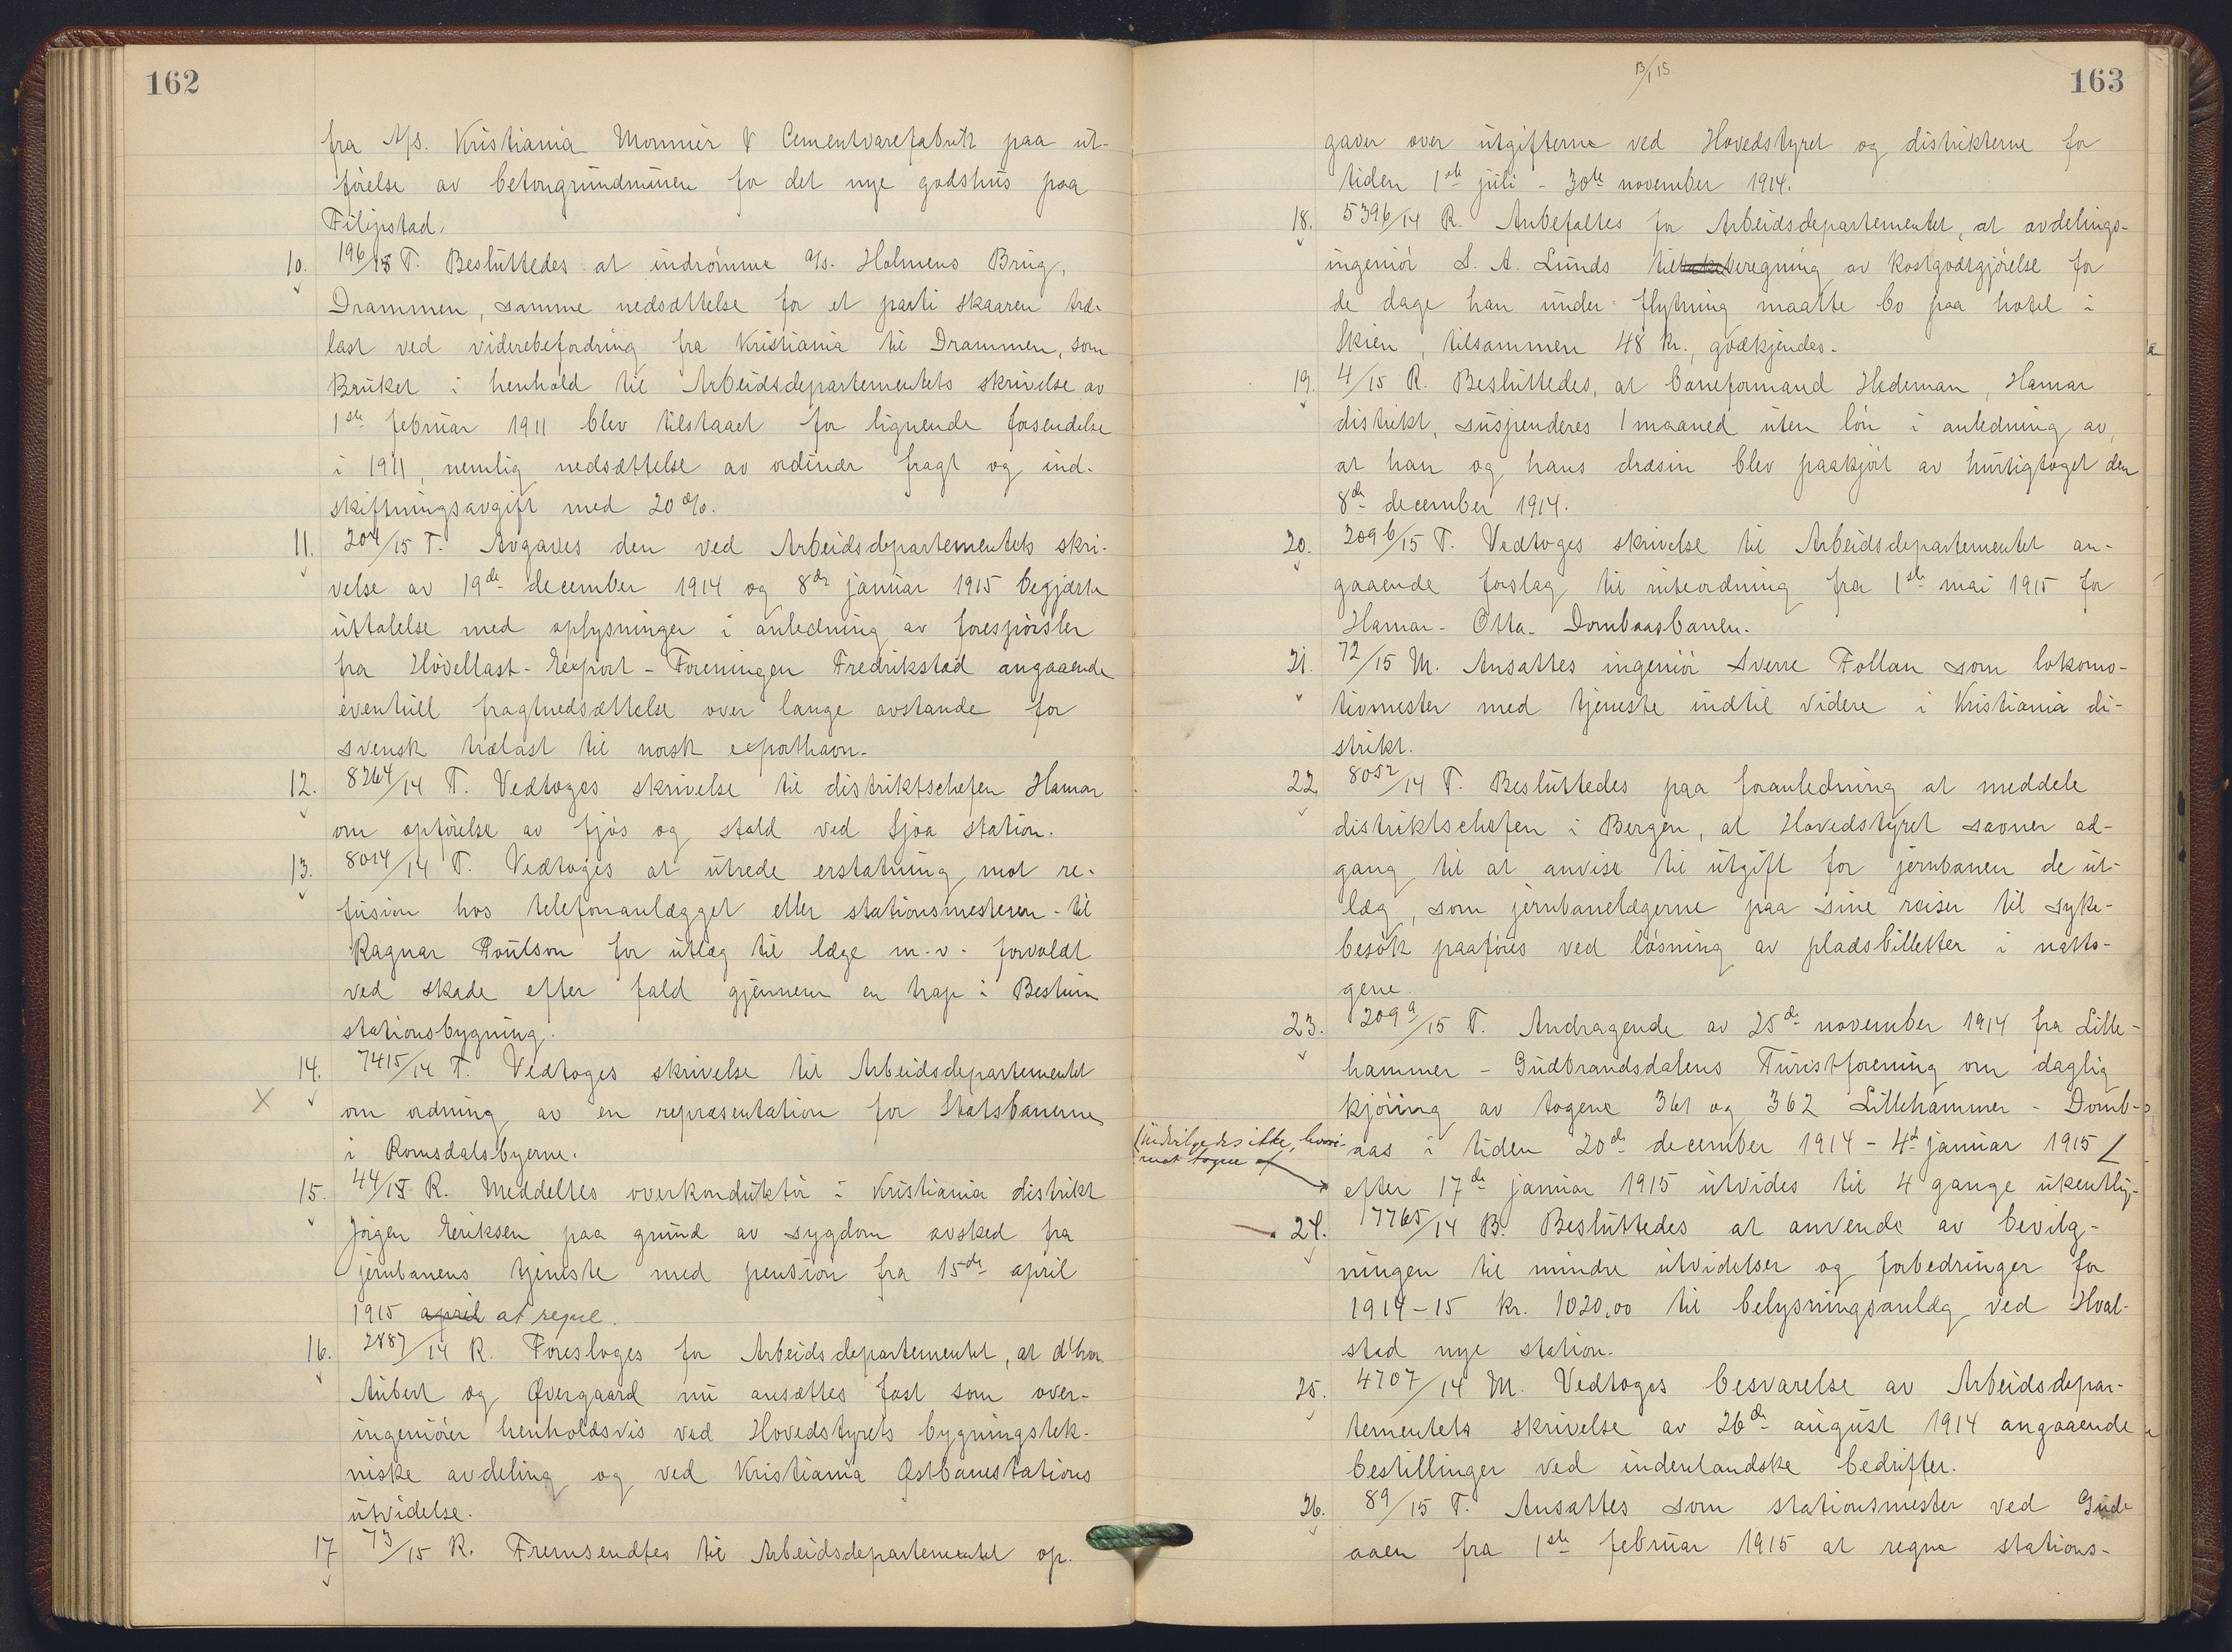 162
fra A/S. Kristiania Monnier & Cementvarefabrik paa ut-
førelse av betongrundmuren for det nye godshus paa
Filipstad.
10. 196/15 T. Besluttedes at indrømme A/S. Holmens Brug,
Drammen, samme nedsættelse for et parti skaaren træ-
last ved viderebefordring fra Kristiania til Drammen, som
Bruket i henhold til Arbeidsdepartementets skrivelse av
1ste februar 1911 blev tilstaaet for lignende forsendelse
i 1911, nemlig nedsættelse av ordinær fragt og ind-
skiftningsavgift med 20 %.
11. 204/15 T. Avgaves den ved Arbeidsdepartementets skri-
velse av 19de december 1914 og 8de januar 1915 begjærte
uttalelse med oplysninger i anledning av forespørsler
fra Høvellast-Export-Foreningen Fredrikstad angaaende
eventuell fragtnedsættelse over lange avstande for
svensk trælast til norsk exporthavn.
12. 8264/14 T. Vedtoges skrivelse til distriktschefen Hamar
om opførelse av fjøs og stald ved Sjoa station.
13. 8014/14 T. Vedtoges at utrede erstatning mot re-
fusion hos telefonanlægget eller stationsmesteren - til
Ragnar Poulson for utlæg til læge m.v. forvoldt
ved skade efter fald gjennem en trap i Bestum
stationsbygning.
14. 7415/14 T. Vedtoges skrivelse til Arbeidsdepartementet
om ordning av en repræsentation for Statsbanerne
i Romsdalsbyerne.
15. 44/15 R. Meddeltes overkonduktør i Kristiania distrikt
Jørgen Eriksen paa grund av sygdom avsked fra
jernbanens tjeneste med pension fra 15de april
1915 april at regne.
16. 2887/14 R. Foresloges for Arbeidsdepartementet, at d'hrr.
Aubert og Øvergaard nu ansættes fast som over-
ingeniører henholdsvis ved Hovedstyrets bygningstek-
niske avdeling og ved Kristiania Østbanestations
utvidelse.
17 73/15 R. Fremsendtes til Arbeidsdepartementet op-
13/1 15
163
gaver over utgifterne ved Hovedstyret og distrikterne for
tiden 1ste juli - 30te november 1914.
18. 5396/14 R. Anbefaltes for Arbeidsdepartementet, at avdelings-
ingeniør S. A. Lunds beregning av kostgodtgjørelse for
de dage han under flytning maatte bo paa hotel i
Skien, tilsammen 48 kr., godkjendes.
19. 4/15 R. Besluttedes, at baneformand Hedeman, Hamar
distrikt, suspenderes 1 maaned uten løn i anledning av,
at han og hans dræsin blev paakjørt av hurtigtoget den
8de december 1914.
20. 2096/15 T. Vedtoges skrivelse til Arbeidsdepartementet an-
gaaende forslag til ruteordning fra 1ste mai 1915 for
Hamar - Otta - Dombaasbanen.
21. 72/15 M. Ansattes ingeniør Sverre Follan som lokomo-
tivmester med tjeneste indtil videre i Kristiania di-
strikt.
22 8052/14 T. Besluttedes paa foranledning at meddele
distriktschefen i Bergen, at Hovedstyret savner ad-
gang til at anvise til utgift for jernbanen de ut-
læg, som jernbanelægerne paa sine reiser til syke-
besøk paaføres ved løsning av pladsbilletter i natto-
gene.
23. 2099/15 T. Andragende av 25de november 1914 fra Lille-
hammer - Gudbrandsdalens Turistforening om daglig
kjøring av togene 361 og 362 Lillehammer - Domb-
aas i tiden 20de december 1914 - 4de januar 1915
indvilgedes ikke, hvori-
mot togene
efter 17de januar 1915 utvides til 4 gange ukentlig.
24. 17765/14 B. Besluttedes at anvende av bevilg-
ningen til mindre utvidelser og forbedringer for
1914-15 kr. 1020,00 til belysningsanlæg ved Hval-
stad nye station.
25. 4707/14 M. Vedtoges besvarelse av Arbeidsdepar-
tementets skrivelse av 26de august 1914 angaaende
bestillinger ved indenlandske bedrifter.
26. 89/15 T. Ansattes som stationsmester ved Gud-
aaen fra 1ste februar 1915 at regne stations-